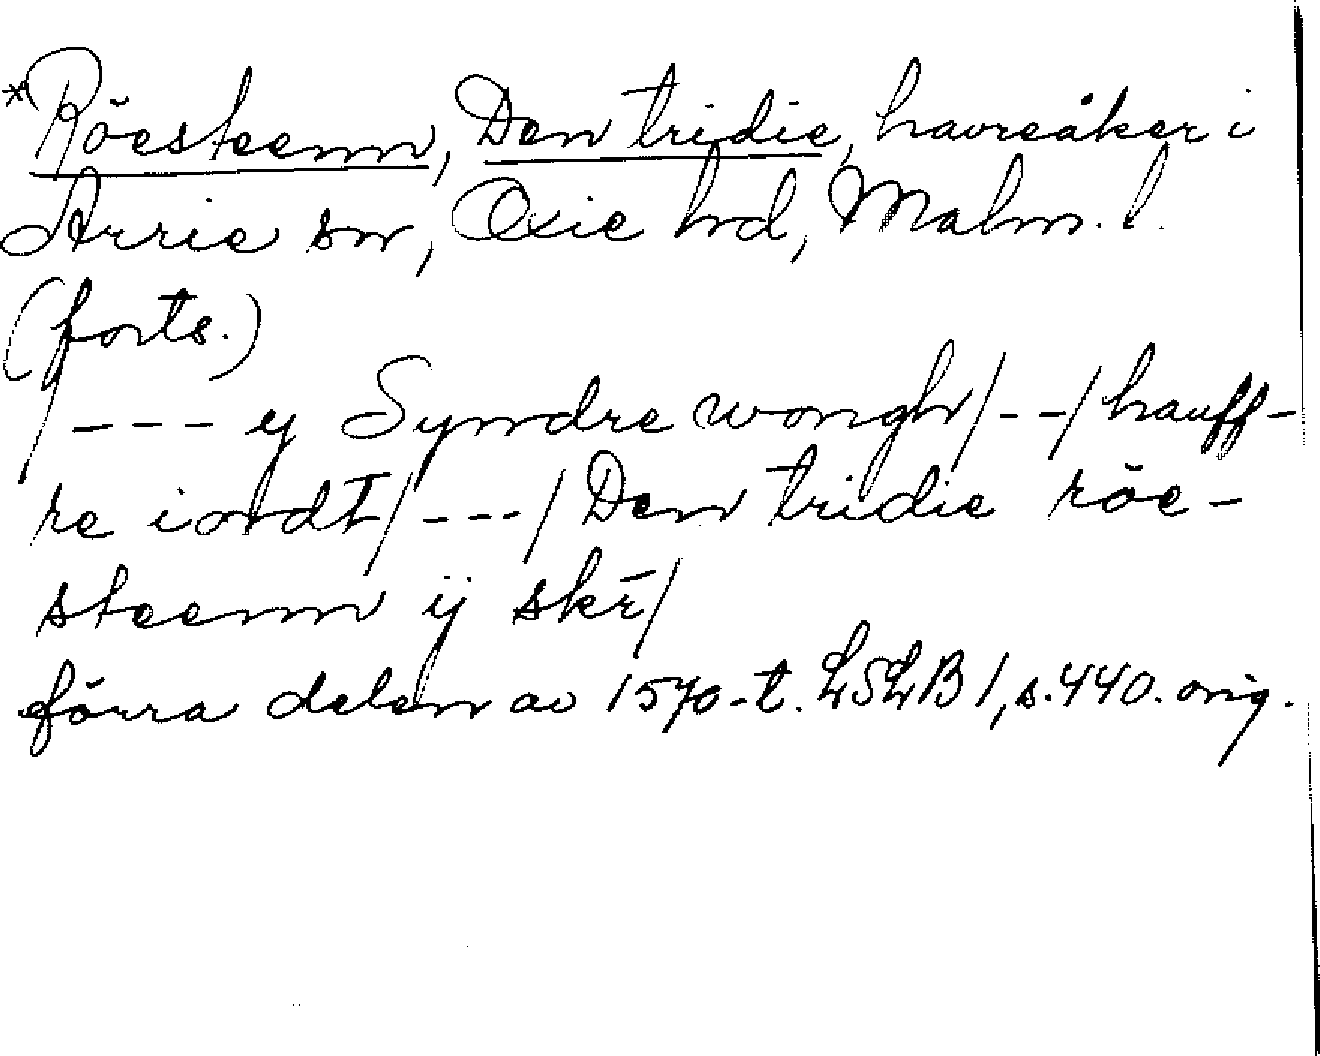 *Röesteenn, Den tridie, havreåker i
Arrie sn, Oxie hd, Malm. l.
(forts.)
/--- y Syndre wongh/--/hauff-
re iordt/---/Den tridie röe-
steenn ij skr̄/
förra delen av 1570-t. LSLB 1, s. 440. orig.